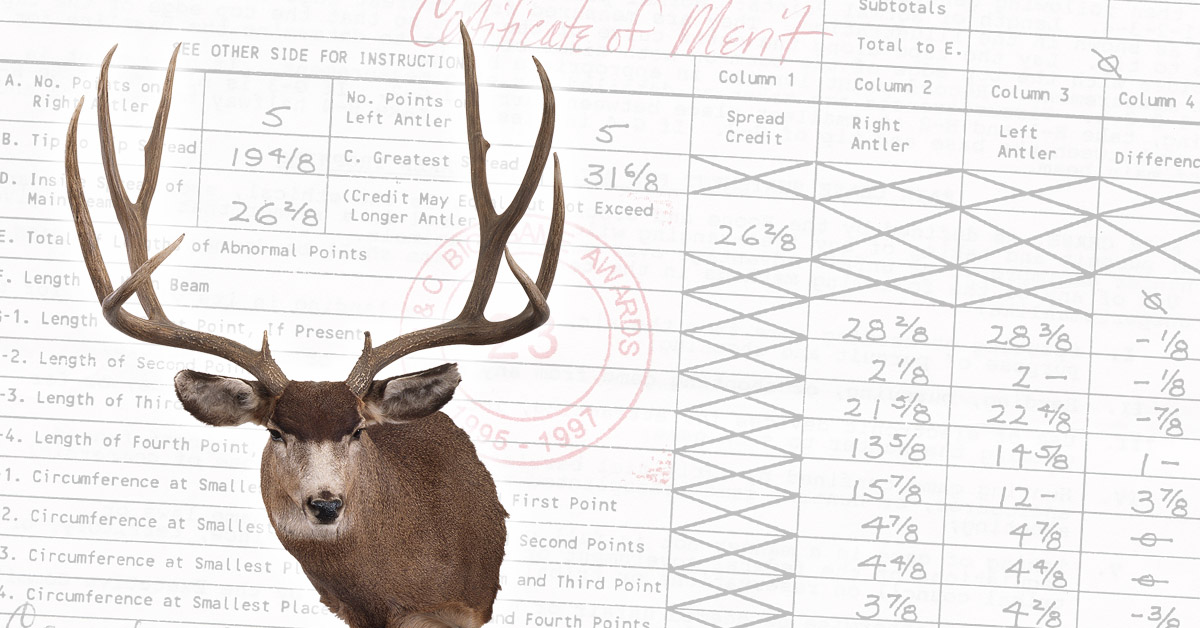 Certificate of Merit
Subtotals
Total to E.
EE OTHER SIDE FOR INSTRUCTION
Column 1
Column 2
Column 3
Column 4
A. No. Points on
Right Antler
5
No. Points o
Left Antler
5
Spread
Credit
Right
Antler
Left
Antler
Differenc
B. Tip Spread
19 4/8
C. Greatest Spread
31 6/8
D. Inside Spread of
Main Beam
26 2/8
(Credit May Equal But Not Exceed
Longer Antle
26 2/8
E. Total of Lengths of Abnormal Points
F. Length Beam
28 2/8
28 3/8
- 1/8
G-1. Length Point, If Present
2 1/8
2 -
- 1/8
-2. Length of Second Point
21 5/8
22 4/8
-7/8
-3. Length of Third
13 5/8
14 5/8
1 -
-4. Length of Fourth Point,
15 7/8
12 -
3 7/8
1. Circumference at Smalle
First Point
4 7/8
4 7/8
2. Circumference at Smalles
Second Points
4 4/8
4 4/8
3. Circumference at Smallest Pl
and Third Point
3 7/8
4 2/8
-3/8
4. Circumference at Smallest Plac
nd Fourth Points
B&C BIG GAME AWARDS
23
1996 - 1997